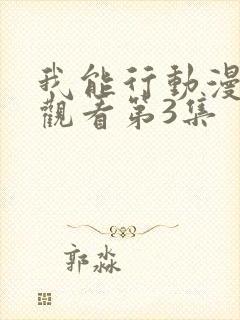 我能行動漫
觀看第3集
郭淼